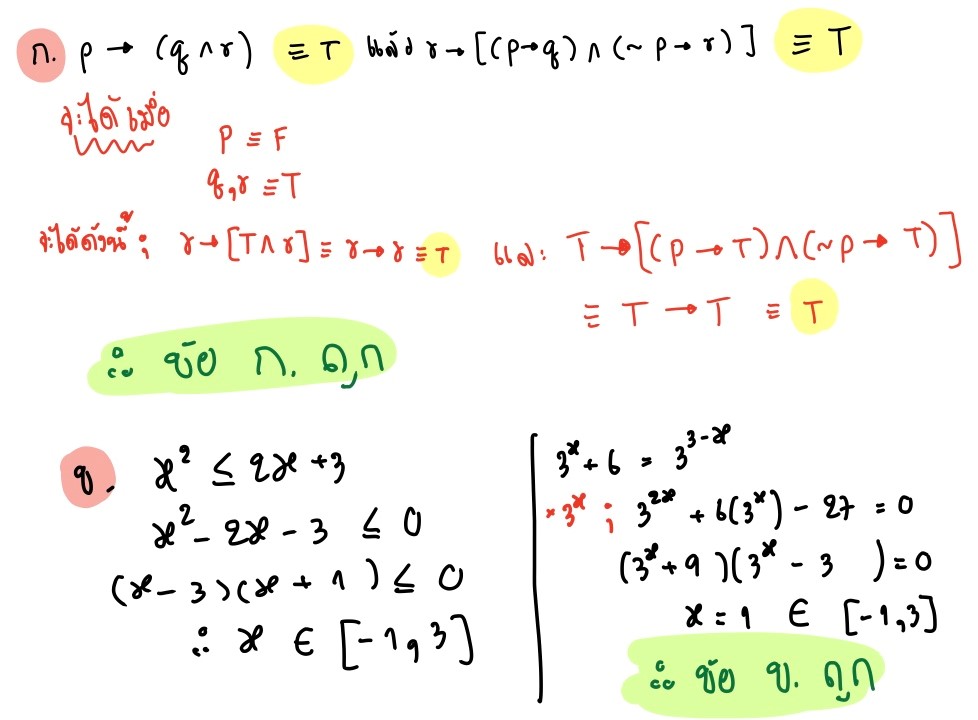 ก. p → (q ∧ r) ≡ T แล้ว r → [(p→q) ∧ (~p → r)] ≡ T
จะได้เมื่อ
p ≡ F
q, r ≡ T
จะได้ดังนี้ ; r → [T ∧ r] ≡ r → r ≡ T และ T → [(p → T) ∧ (~p → T)]
≡ T → T ≡ T
∴ ข้อ ก. ถูก
ข. x² ≤ 2x + 3
x² - 2x - 3 ≤ 0
(x - 3)(x + 1) ≤ 0
∴ x ∈ [-1, 3]
3^x + 6 = 3^{3-x}
×3^x ; 3^{2x} + 6(3^x) - 27 = 0
(3^x + 9)(3^x - 3) = 0
x = 1 ∈ [-1, 3]
∴ ข้อ ข. ถูก